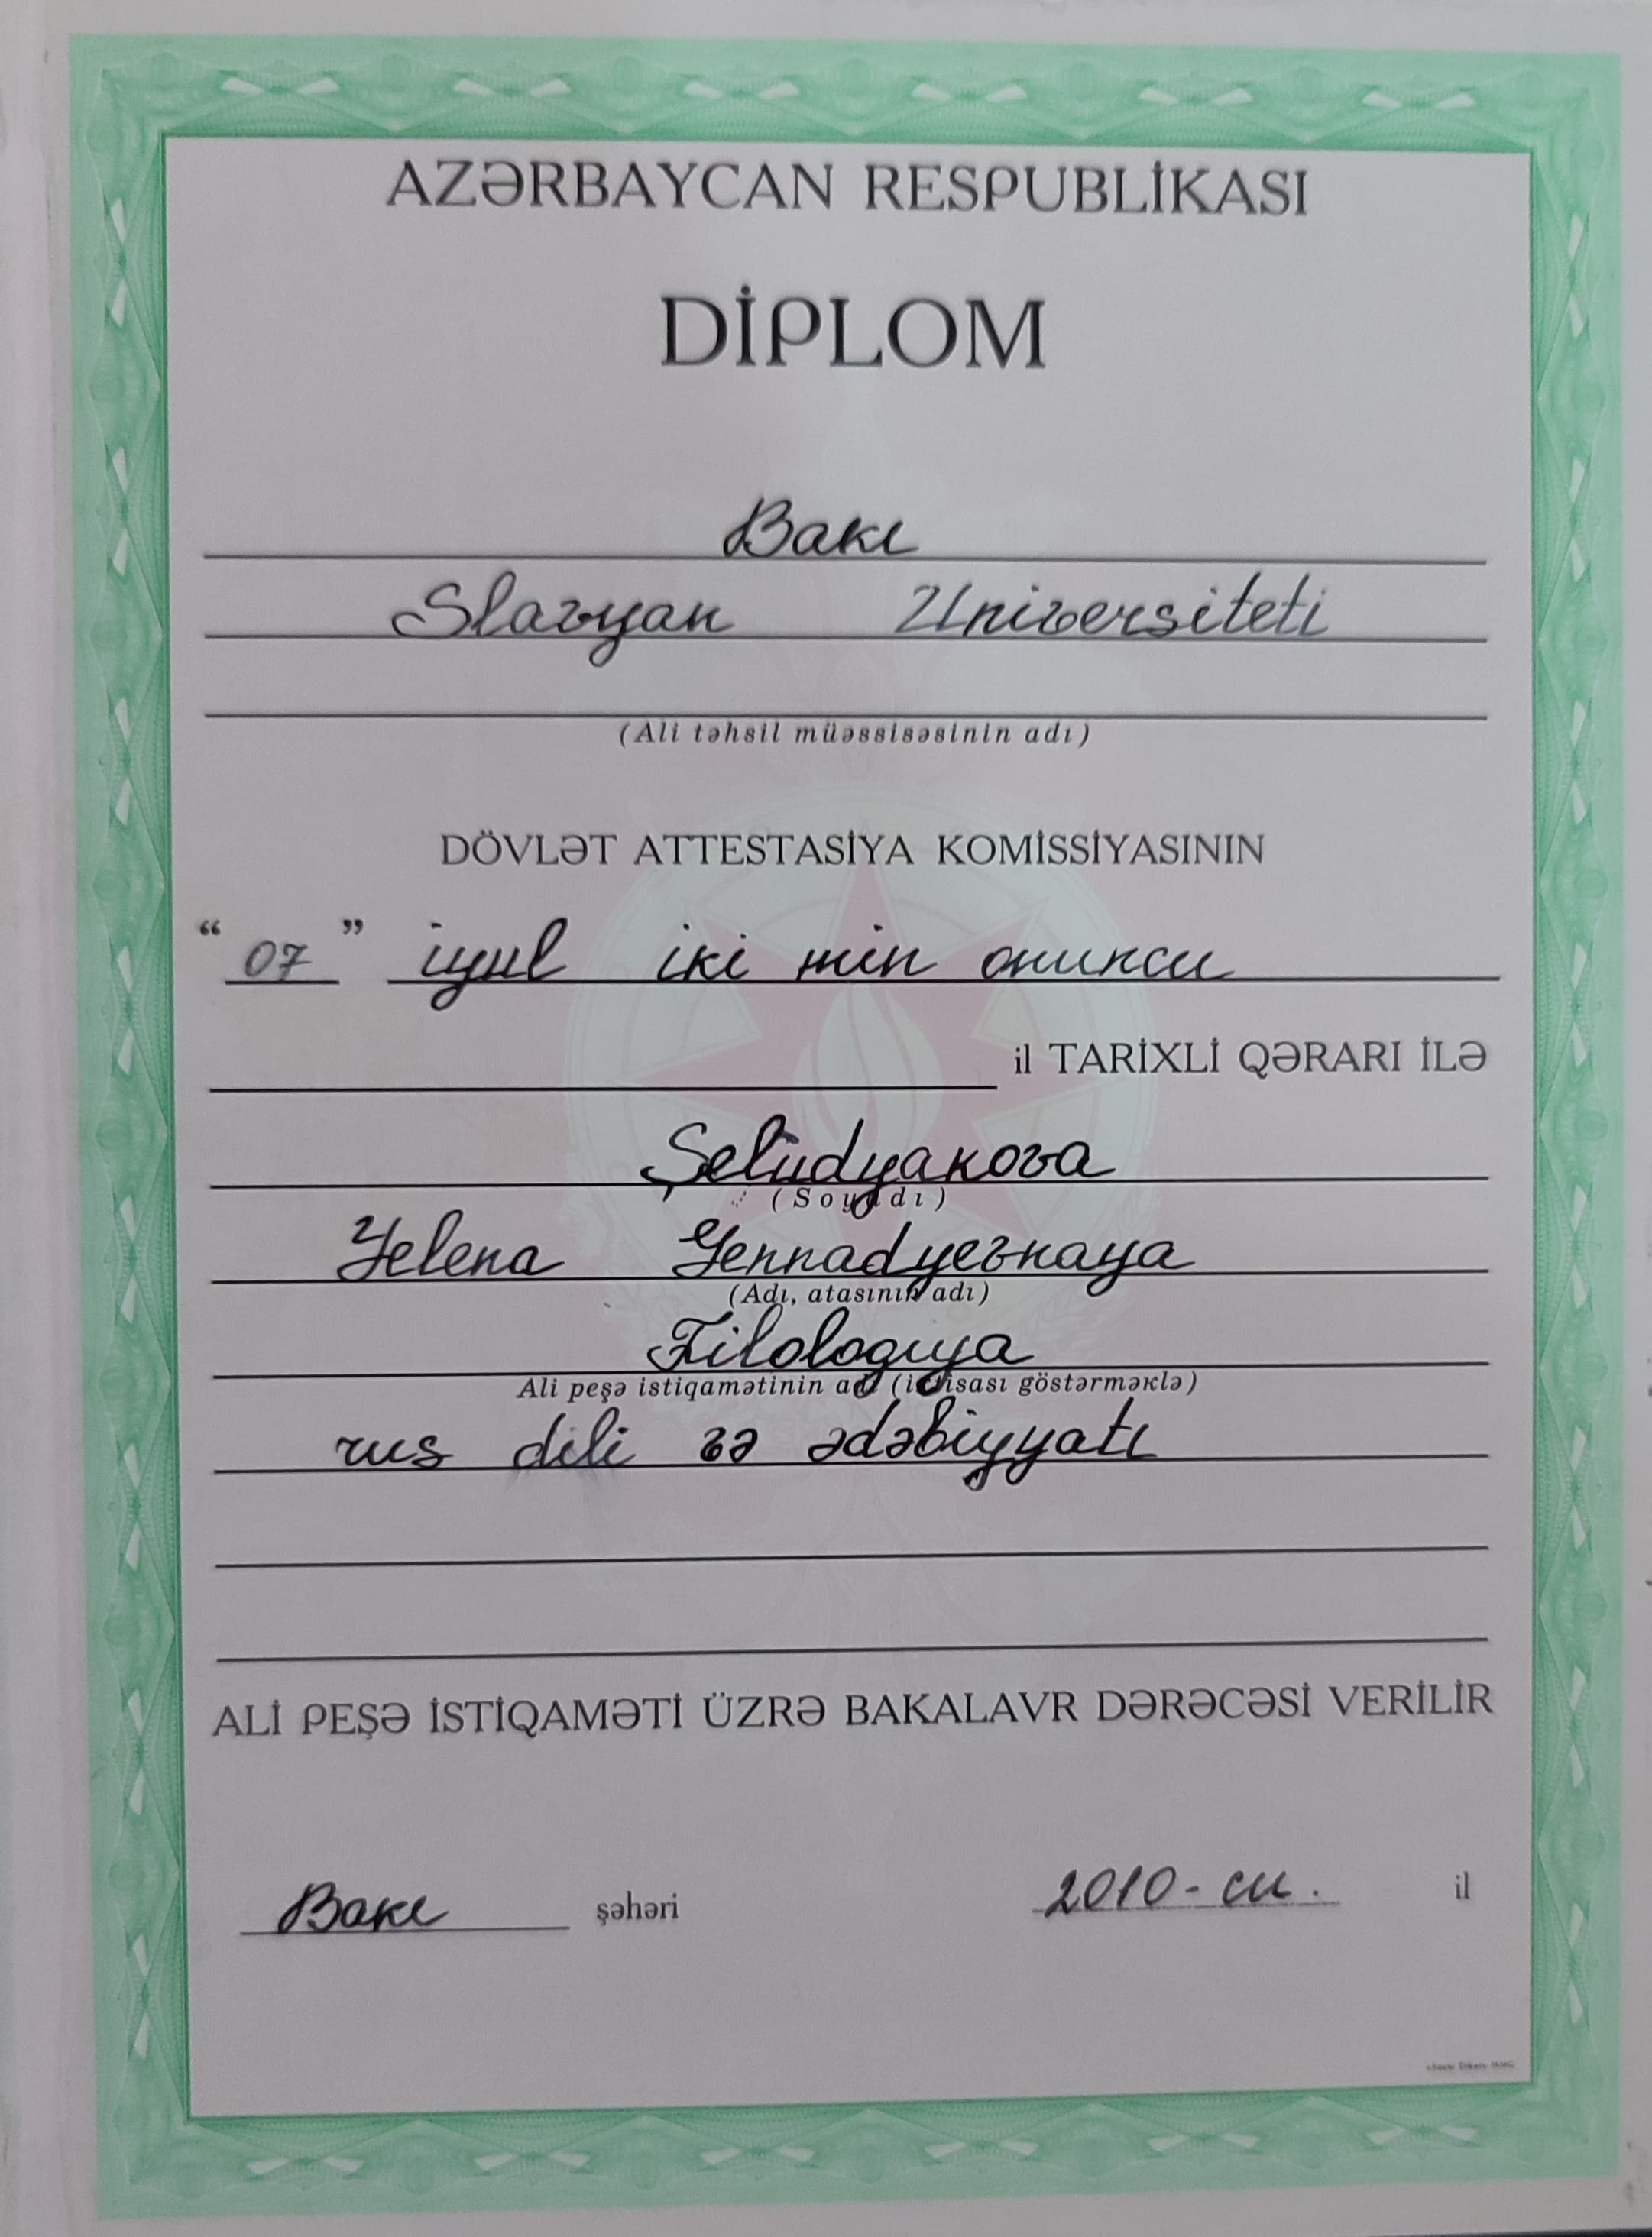 AZƏRBAYCAN RESPUBLİKASI
DİPLOM
Bakı
Slavyan Universiteti
(Ali təhsil müəssisəsinin adı)
DÖVLƏT ATTESTASİYA KOMİSSİYASININ
“ 07 ” iyul iki min onuncu
il TARİXLİ QƏRARI İLƏ
Şeludyakova
(Soyadı)
Yelena Gennadyevnaya
(Adı, atasının adı)
Filologiya
Ali peşə istiqamətinin adı (ixtisası göstərməklə)
rus dili və ədəbiyyatı
ALİ PEŞƏ İSTİQAMƏTİ ÜZRƏ BAKALAVR DƏRƏCƏSİ VERİLİR
Bakı şəhəri 2010-cu. il